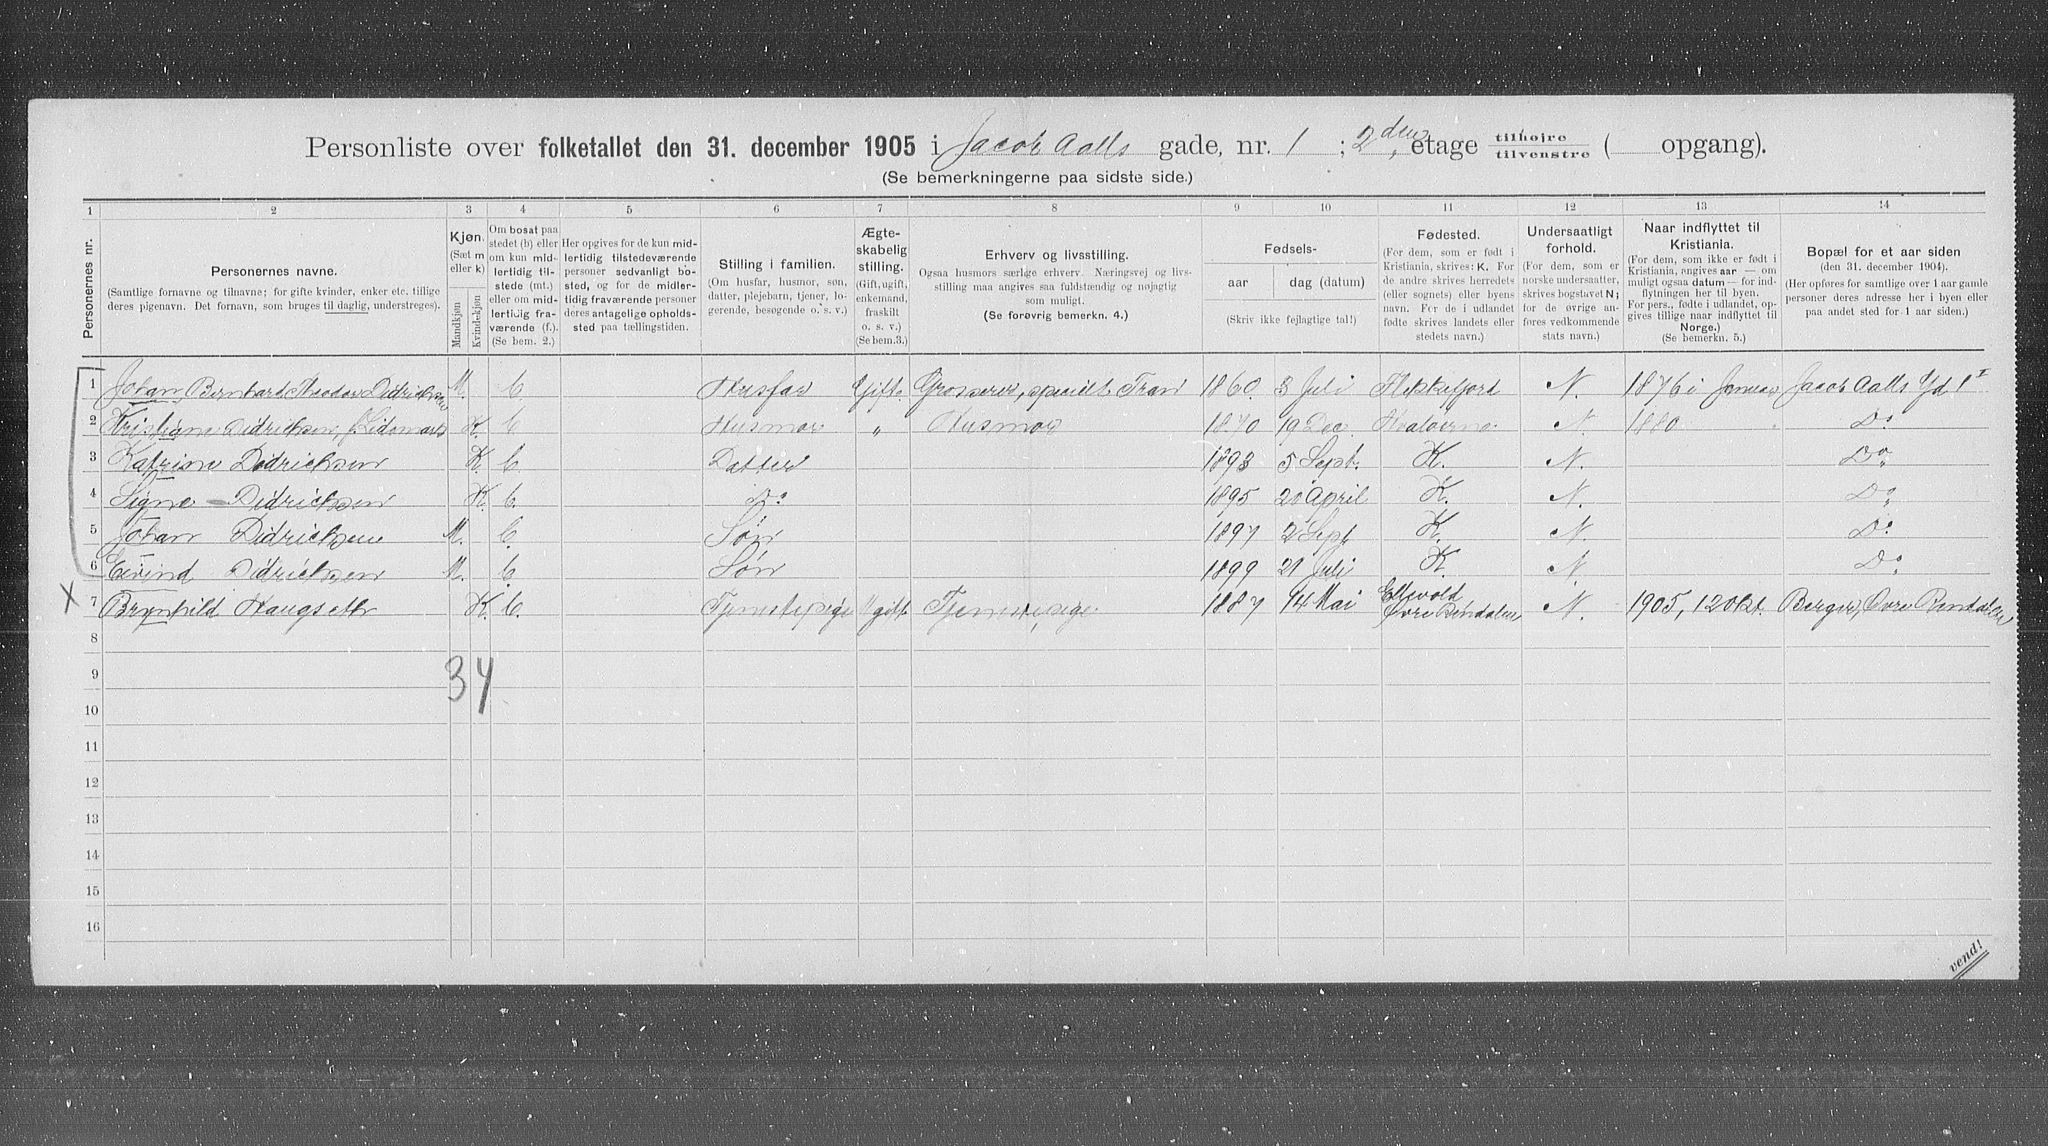 Personliste over folketallet den 31. december 1905 i Jacob Aalls gade, nr. 1 ; 2den etage tilhøjre tilvenstre ( opgang).
(Se bemerkningerne paa sidste side.)
1 2 3 4 5 6 7 8 9 10 11 12 13 14
Personernes nr.
Personernes navne.
(Samtlige fornavne og tilnavne; for gifte kvinder, enker etc. tillige
deres pigenavn. Det fornavn, som bruges til daglig, understreges).
Kjøn.
(Sæt m
eller k)
Mandkjøn
Kvindekjøn
Om bosat paa
stedet (b) eller
om kun mid-
lertidig til-
stede (mt.)
eller om mid-
lertidig fra-
værende (f.)
(Se bem. 2.)
Her opgives for de kun mid-
lertidig tilstedeværende
personer sedvanligt bo-
sted, og for de midler-
tidig fraværende personer
deres antagelige opholds-
sted paa tællingstiden.
Stilling i familien.
(Om husfar, husmor, søn,
datter, plejebarn, tjener, lo-
gerende, besøgende o. s. v.)
Ægte-
skabelig
stilling.
(Gift, ugift,
enkemand,
fraskilt
o. s. v.)
(Se bem.3.)
Erhverv og livsstilling.
Ogsaa husmors særlige erhverv. Næringsvej og livs-
stilling maa angives saa fuldstændig og nøjagtig
som muligt.
(Se forøvrig bemerkn. 4.)
Fødsels-
aar dag (datum)
(Skriv ikke fejlagtige tal!)
Fødested.
(For dem, som er født i
Kristiania, skrives: K. For
de andre skrives herredets
(eller sognets) eller byens
navn. For de i udlandet
fødte skrives landets eller
stedets navn.)
Undersaatligt
forhold.
(For dem, som er
norske undersaatter,
skrives bogstavet N;
for de øvrige an-
føres vedkommende
stats navn.)
Naar indflyttet til
Kristiania.
(For dem, som ikke er født i
Kristiania, angives aar — om
muligt ogsaa datum — for ind-
flytningen her til byen.
For pers., fødte i udlandet, op-
gives tillige naar indflyttet til
Norge.)
(Se bemerkn. 5.)
Bopæl for et aar siden
(den 31. december 1904).
(Her opføres for samtlige over 1 aar gamle
personer deres adresse her i byen eller
paa andet sted for 1 aar siden.)
1 Johan Bernhard Theodor Didrichsen M. b. Husfar Gift Grosserer, specielt Tran 1860. 3 Juli Flekkefjord N. 1876 i Januar Jacob Aalls Gd 1 I
2 Kristiane Didrichsen, K. b. Husmor " Husmor 1870 19 Dec. Hvaløerne N. 1880 Do
3 Katrine Didrichsen K. b. Datter 1893 5 Sept. K. N. Do
4 Signe Didrichsen K. b. Do 1895 20 April K. N. Do
5 Johan Didrichsen M. b. Søn 1897 2 Sept K. N. Do
6 Eivind Didrichsen M. b. Søn 1899 21 Juli K N. Do
x 7 Brynhild Haugseth K. b. Tjenestepige Ugift Tjenestepige 1887 14 Mai Elvold Øvre Rendalen N. 1905, 12 Okt. Berger, Øvre Rendalen
8
9
34
10
11
12
13
14
15
16
vend!